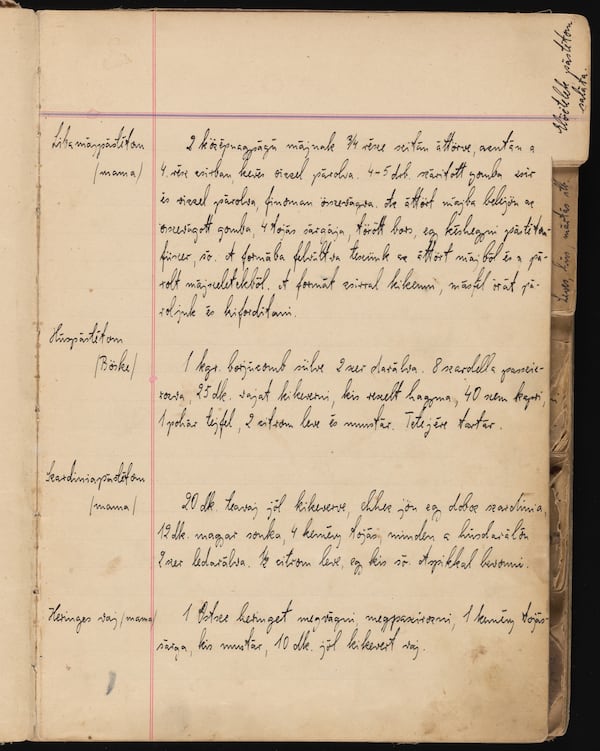 Előételek pástétom
saláta.
Leves, hús, mártás stb.
Libamájpástétom
/mama/
2 középnagyságú májnak 3/4 része szitán áttörve, azután a
4. rész zsirban, kevés vizzel párolva. 4-5 drb. száritott gomba zsir
és vizzel párolva, finoman összevágva. Az áttört májba belejön az
összevágott gomba, 4 tojás sárgája, törött bors, egy késhegyni pástétom-
füszer, só. A formába felváltva teszünk az áttört májból és a pá-
rolt májszeletekből. A formát zsirral kikenni, másfél órát pá-
roljuk és kiforditani.
Húspástétom
/Böske/
1 kgr. borjúcomb sülve 2 szer darálva. 8 szardella passzi-
rozva, 25 dk. vajat kikeverni, kis reszelt hagyma, 40 szem kapri,
1 pohár tejfel, 2 citrom leve és mustár. Tetejére tartár.
Szardiniapástétom
/mama/
20 dk. teavaj jól kikeverve, ehhez jön egy doboz szardinia,
12 dk. magyar sonka, 4 kemény tojás, minden a húsdarálón
2 szer ledarálva. 1/2 citrom leve, egy kis só. Aszpikkal bevonni.
Heringes vaj /mama/
1 Ostsee heringet megvágni, megpaszirozni, 1 kemény tojás-
sárga, kis mustár, 10 dk. jól kikevert vaj.